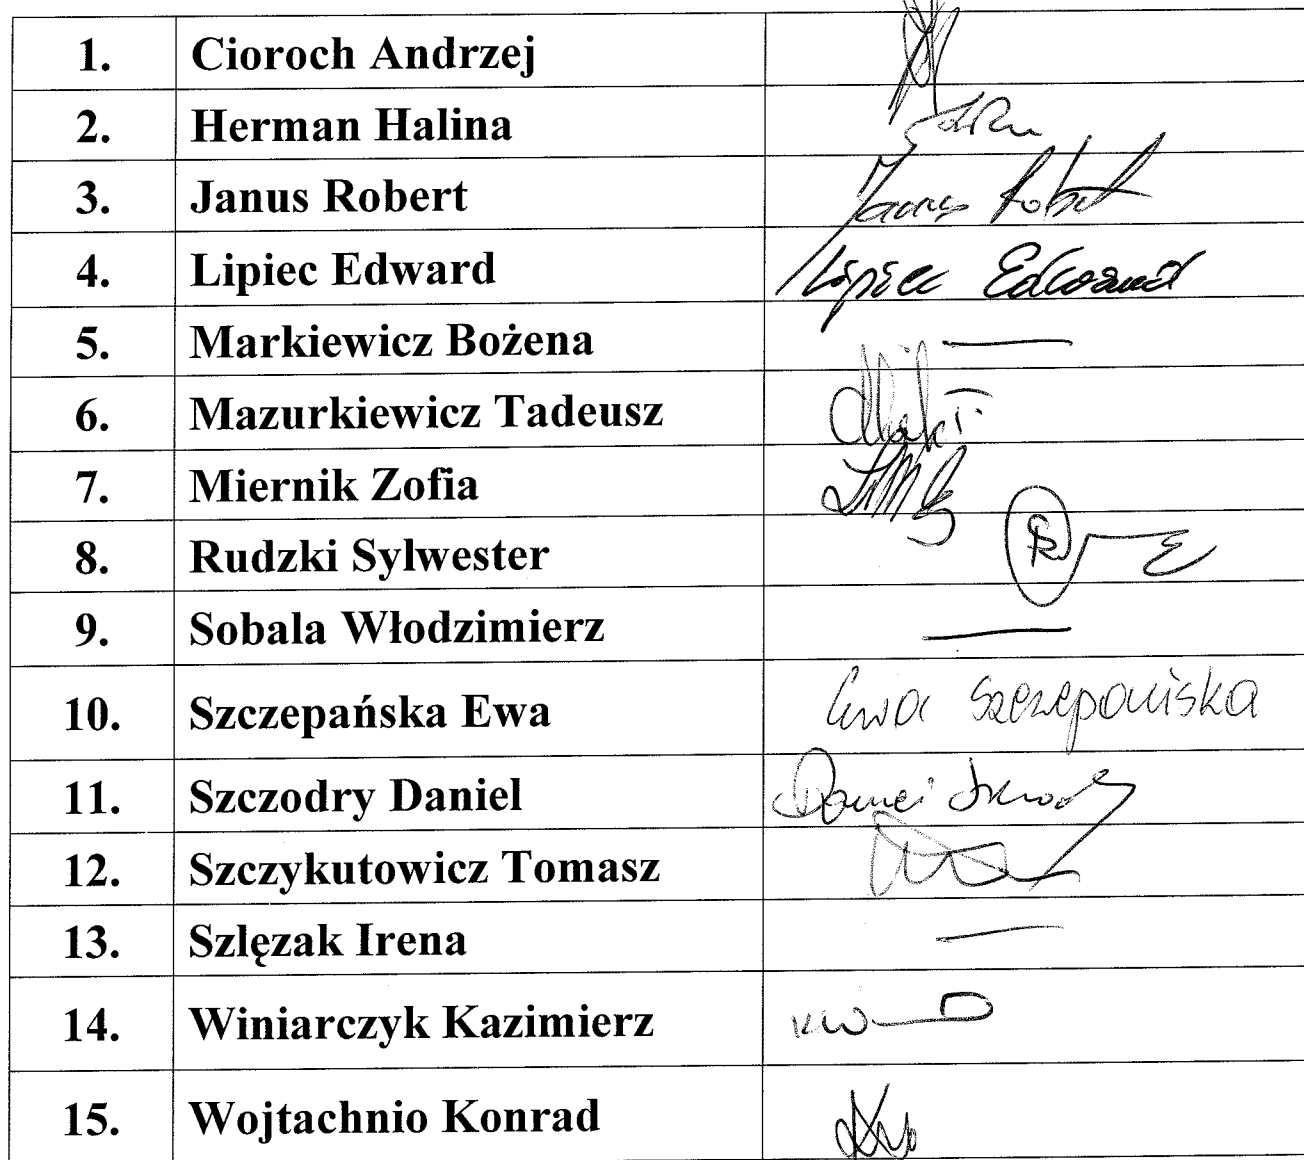 1. Cioroch Andrzej
2. Herman Halina
3. Janus Robert Janus Robert
4. Lipiec Edward Lipiec Edward
5. Markiewicz Bożena —
6. Mazurkiewicz Tadeusz
7. Miernik Zofia
8. Rudzki Sylwester
9. Sobala Włodzimierz —
10. Szczepańska Ewa Ewa Szczepańska
11. Szczodry Daniel Daniel
12. Szczykutowicz Tomasz
13. Szlęzak Irena —
14. Winiarczyk Kazimierz
15. Wojtachnio Konrad